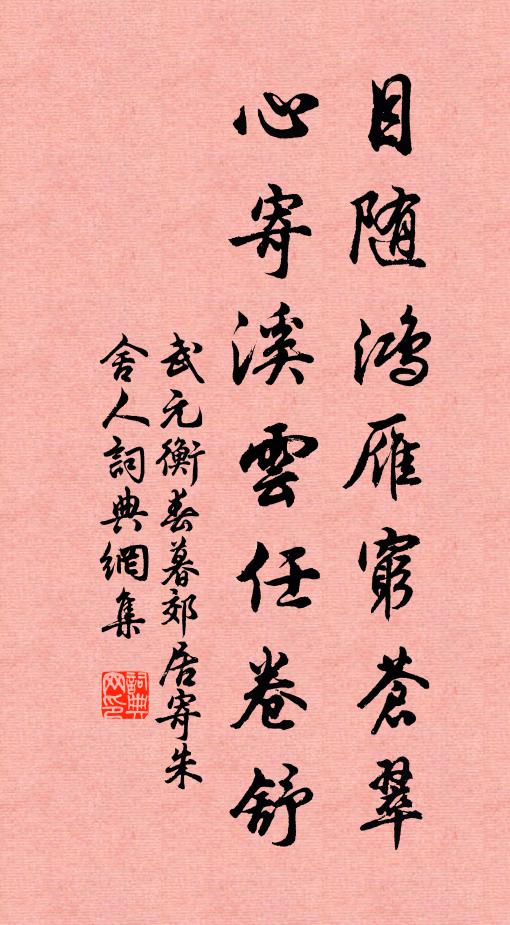 目随鸿雁窮蒼翠
心寄溪雲任卷舒
武元衡春暮郊居寄朱
舍人詞典網集
詞典
网印